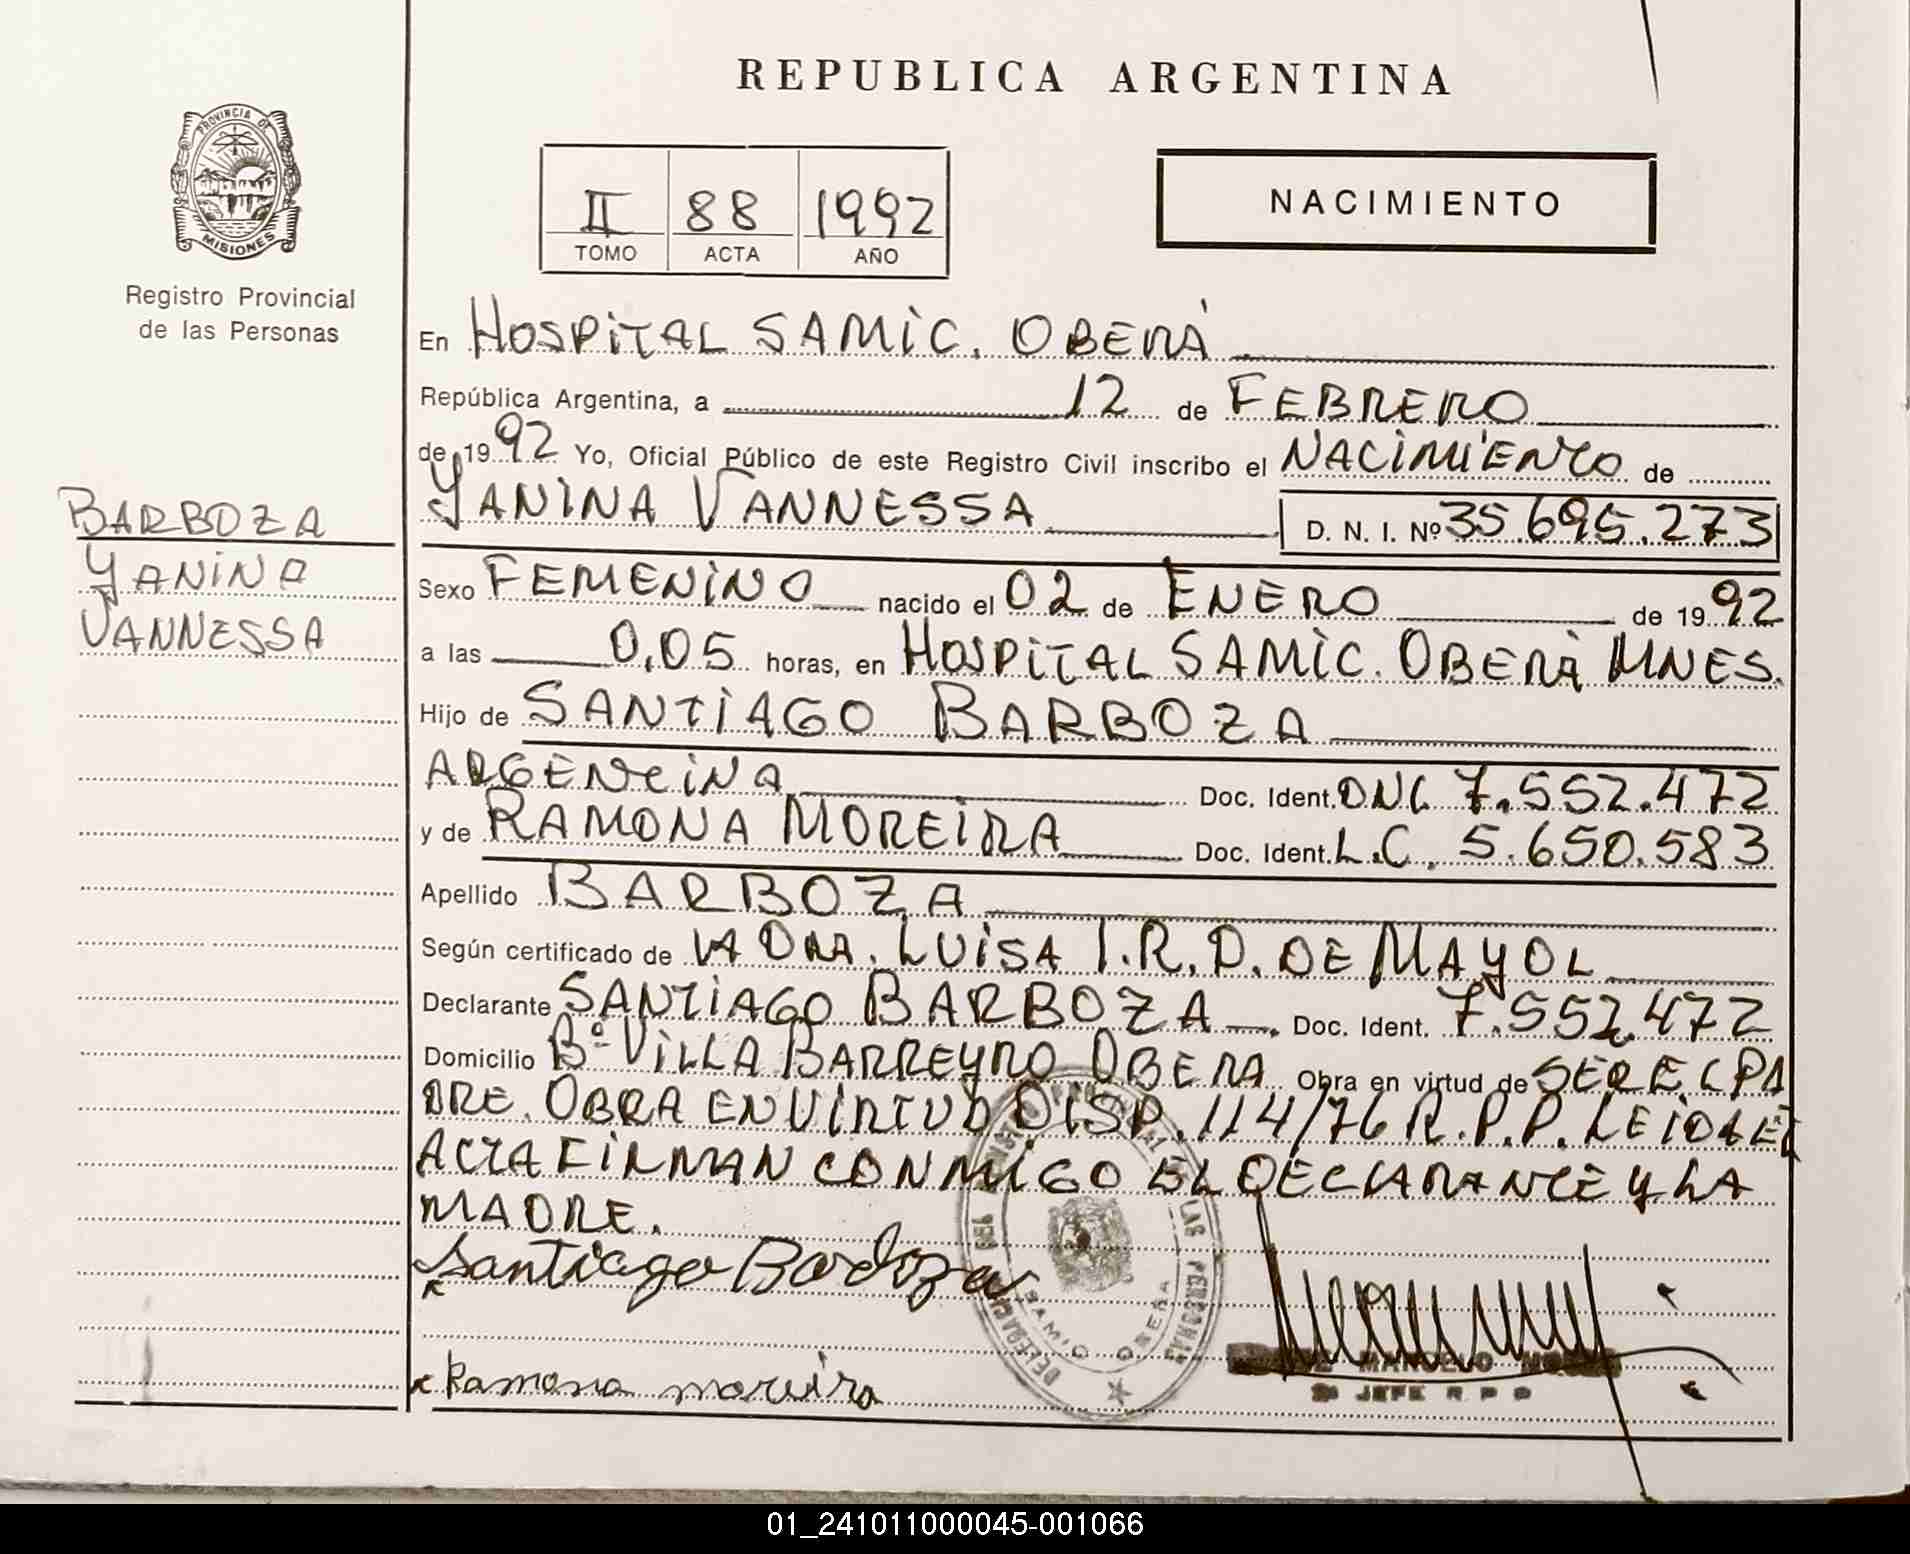 REPUBLICA ARGENTINA
PROVINCIA DE
MISIONES
Registro Provincial
de las Personas
II 88 1992
TOMO ACTA AÑO
NACIMIENTO
En HOSPITAL SAMIC. OBERÁ
República Argentina, a 12 de FEBRERO
de 1992 Yo, Oficial Público de este Registro Civil inscribo el NACIMIENTO de
YANINA VANNESSA D. N. I. Nº 35.695.273
BARBOZA
YANINA
VANNESSA
Sexo FEMENINO nacido el 02 de ENERO de 1992
a las 0,05 horas, en HOSPITAL SAMIC. OBERÁ MNES.
Hijo de SANTIAGO BARBOZA
ARGENTINA Doc. Ident. DNI. 7.552.472
y de RAMONA MOREIRA Doc. Ident. L.C. 5.650.583
Apellido BARBOZA
Según certificado de LA DRA. LUISA I.R.D. DE MAYOL
Declarante SANTIAGO BARBOZA Doc. Ident. 7.552.472
Domicilio Bº VILLA BARREYRO OBERA Obra en virtud de SER EL PA
DRE. OBRA EN VIRTUD DISP. 114/76 R.P.P. LEIDA EL
ACTA FIRMAN CONMIGO EL DECLARANTE Y LA
MADRE.
Santiago Barboza
Ramona moreira
DELEGACION SAMIC OBERA
LAS PERSONAS
MARCELO
JEFE R P P
01_241011000045-001066